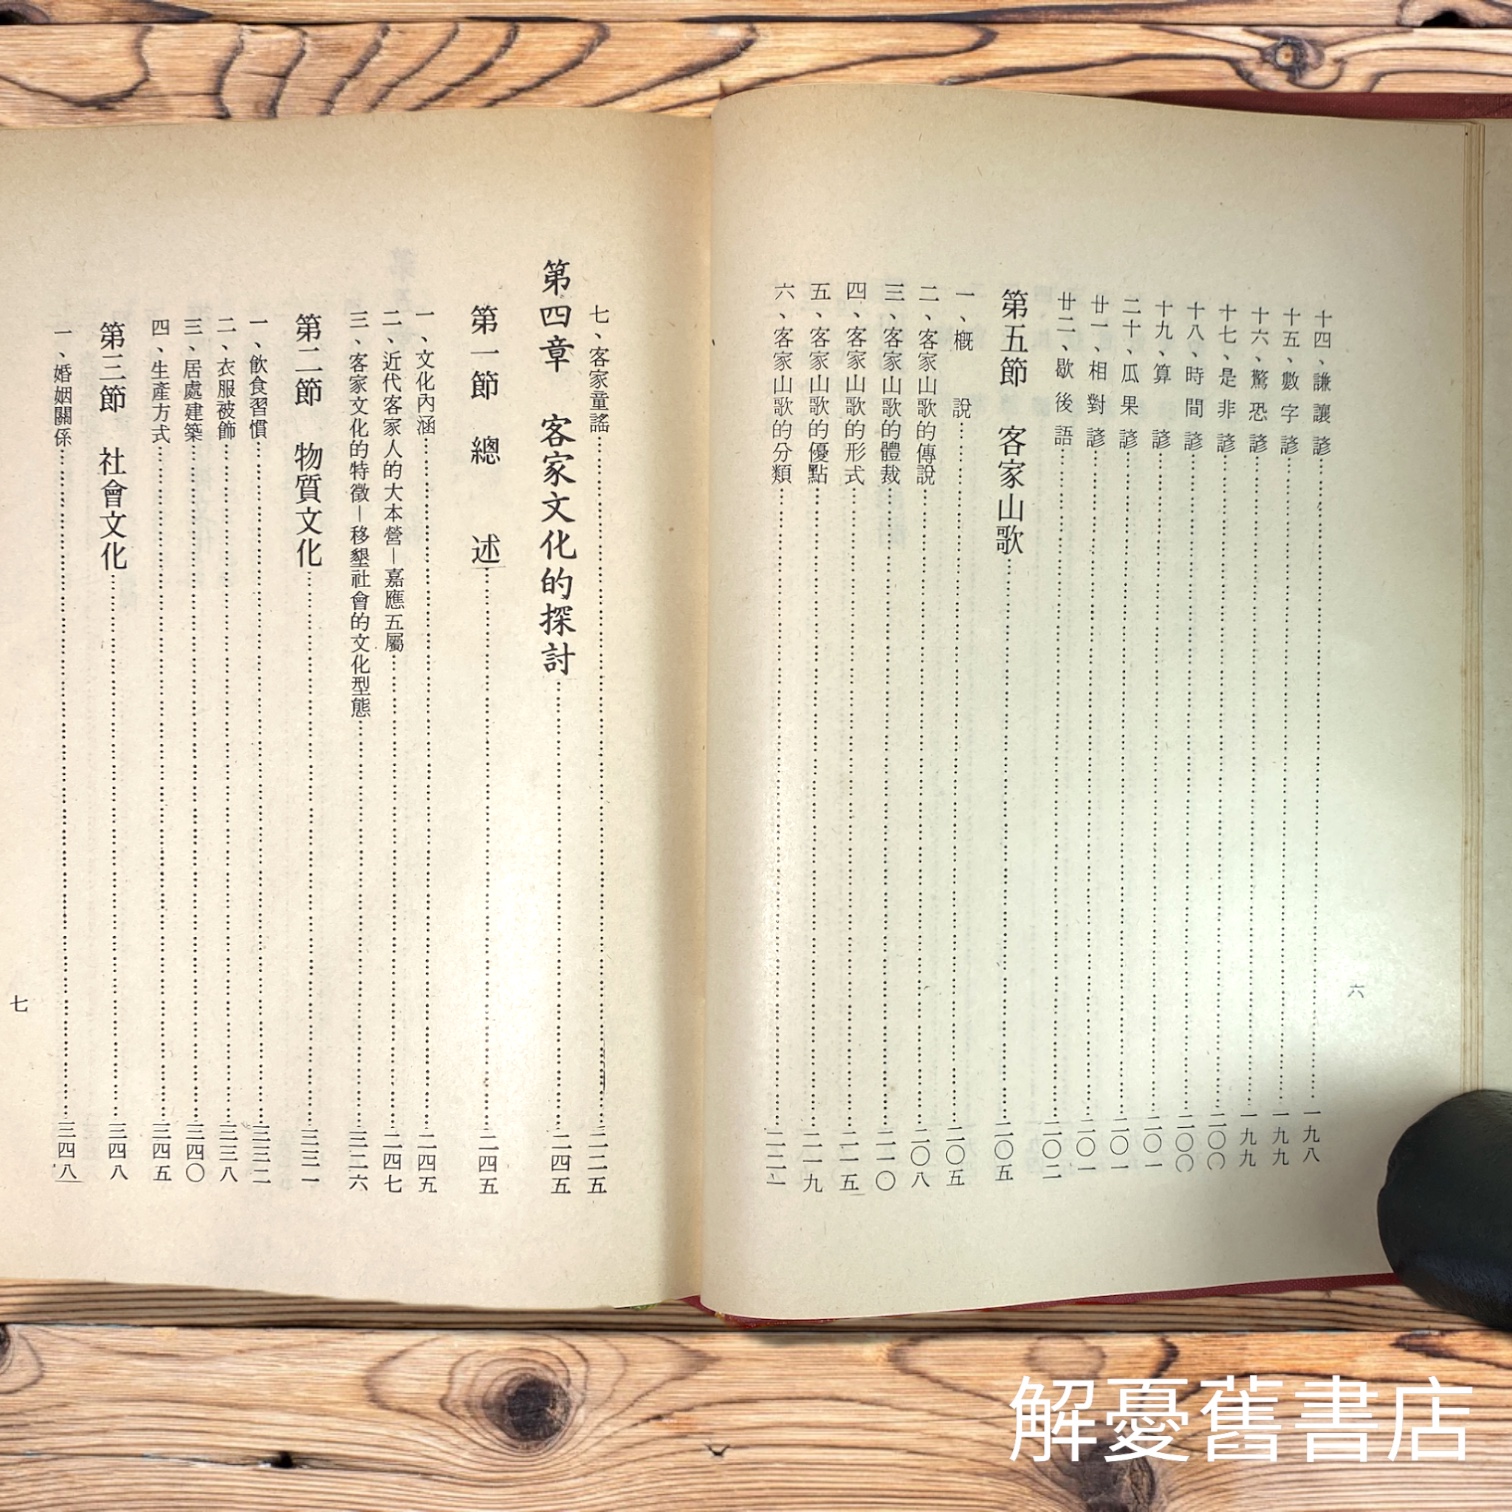 十四、謙讓諺……一九八
十五、數字諺……一九九
十六、驚恐諺……一九九
十七、是非諺……二〇〇
十八、時間諺……二〇〇
十九、算諺……二〇一
二十、瓜果諺……二〇一
廿一、相對諺……二〇一
廿二、歇後語……二〇二
第五節 客家山歌……二〇五
一、概說……二〇五
二、客家山歌的傳說……二〇八
三、客家山歌的體裁……二一〇
四、客家山歌的形式……二一五
五、客家山歌的優點……二一九
六、客家山歌的分類……二二一
六
七、客家童謠……二二五
第四章 客家文化的探討……二四五
第一節 總述……二四五
一、文化內涵……二四五
二、近代客家人的大本營—嘉應五屬……二四七
三、客家文化的特徵—移墾社會的文化型態……三二六
第二節 物質文化……三三一
一、飲食習慣……三三二
二、衣服被飾……三三八
三、居處建築……三四〇
四、生產方式……三四五
第三節 社會文化……三四八
一、婚姻關係……三四八
七
解憂舊書店